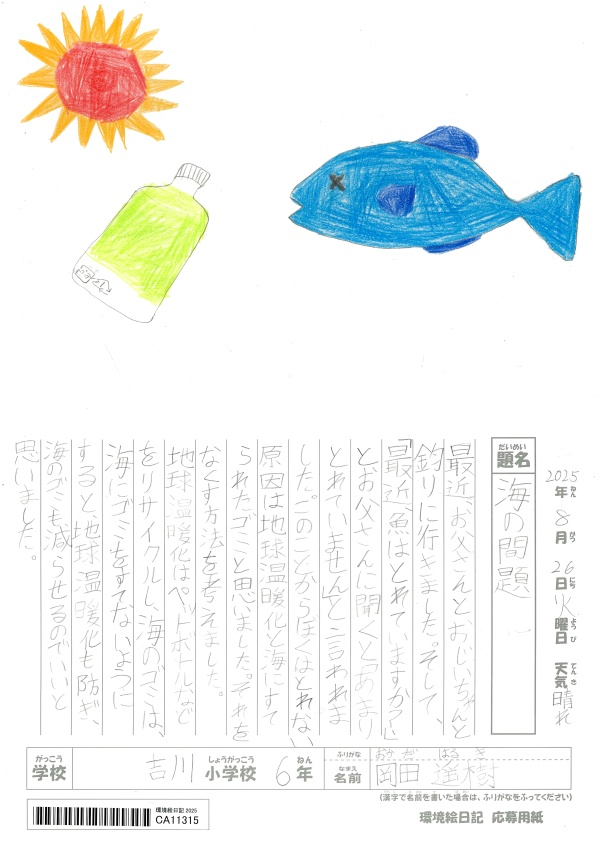 2025年8月26日火曜日 天気晴れ
ねん がつ にち ようび てんき
だいめい
題名 海の問題
最近、お父さんと、おじいちゃんと
釣りに行きました。そして、
「最近、魚はとれていますか？」
とお父さんに聞くと「あまり
とれていません」と言われま
した。このことからぼくはとれない
原因は地球温暖化と海にすて
られたゴミと思いました。それを
なくす方法を考えました。
地球温暖化はペットボトルなど
をリサイクルし、海のゴミは、
海にゴミをすてないように
すると、地球温暖化も防ぎ、
海のゴミも減らせるのでいいと
思いました。
がっこう しょうがっこう ねん
学校 吉川 小学校 6年
ふりがな おかだ はるき
なまえ
名前 岡田 遥樹
(漢字で名前を書いた場合は、ふりがなをふってください)
環境絵日記 2025
CA11315
環境絵日記 応募用紙